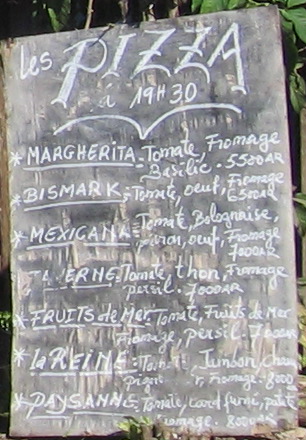 les PIZZA
à 19H30
* MARGHERITA: Tomate, Fromage
Basilic. 5500AR
* BISMARK: Tomate, oeuf, Fromage
6500AR
* MEXICANA: Tomate, Bolognaise,
oeuf, Fromage
7000AR
Tomate, thon, Fromage
persil. 7000AR
* FRUITS de Mer: Tomate, Fruits de Mer
Fromage, persil. 7000AR
* la REINE: Jambon,
Fromage. 8000
* PAYSANNE: Tomate, fumé,
Fromage. 8000AR